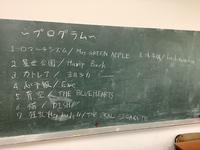 〜プログラム〜
1. ロマンチシズム / Mrs. GREEN APPLE
2. 星世公園 / Hump Back
3. カトレア / ヨルシカ
4. 心予報 / Eve
5. 青空 / THE BLUE HEARTS
6. 猫 / DISH//
7.